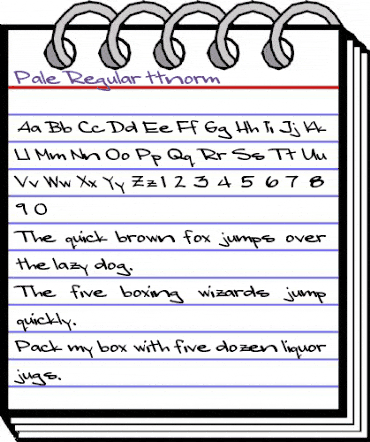 Pale Regular ttnorm
Aa Bb Cc Dd Ee Ff Gg Hh Ii Jj Kk
Ll Mm Nn Oo Pp Qq Rr Ss Tt Uu
Vv Ww Xx Yy Zz 1 2 3 4 5 6 7 8
9 0
The quick brown fox jumps over
the lazy dog.
The five boxing wizards jump
quickly.
Pack my box with five dozen liquor
jugs.